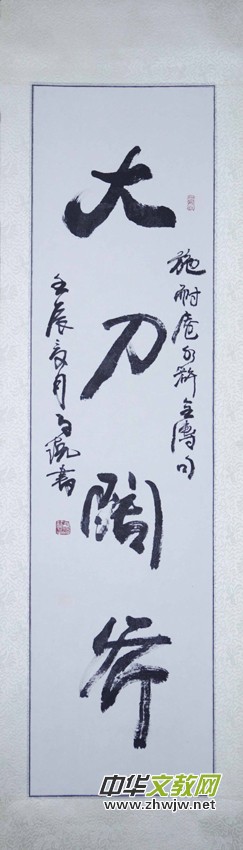 大刀闊斧
施耐庵水滸全傳句
壬辰夏月書
中华文教网
www.zhwjw.net